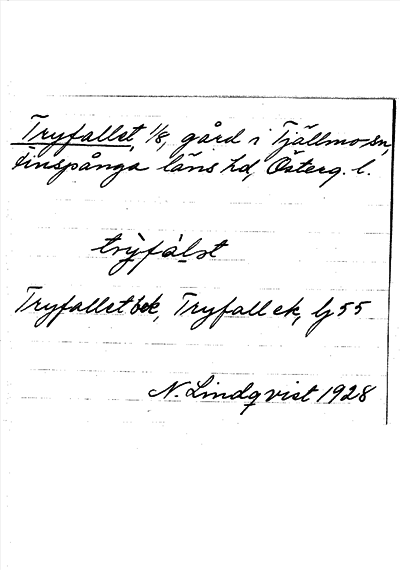 Tryfallet, 1/8, gård i Tjällmo sn,
Finspånga läns hd, Österg. l.
trỳfálət
Tryfallet bek, Tryfall ek, lj 55
N. Lindqvist 1928